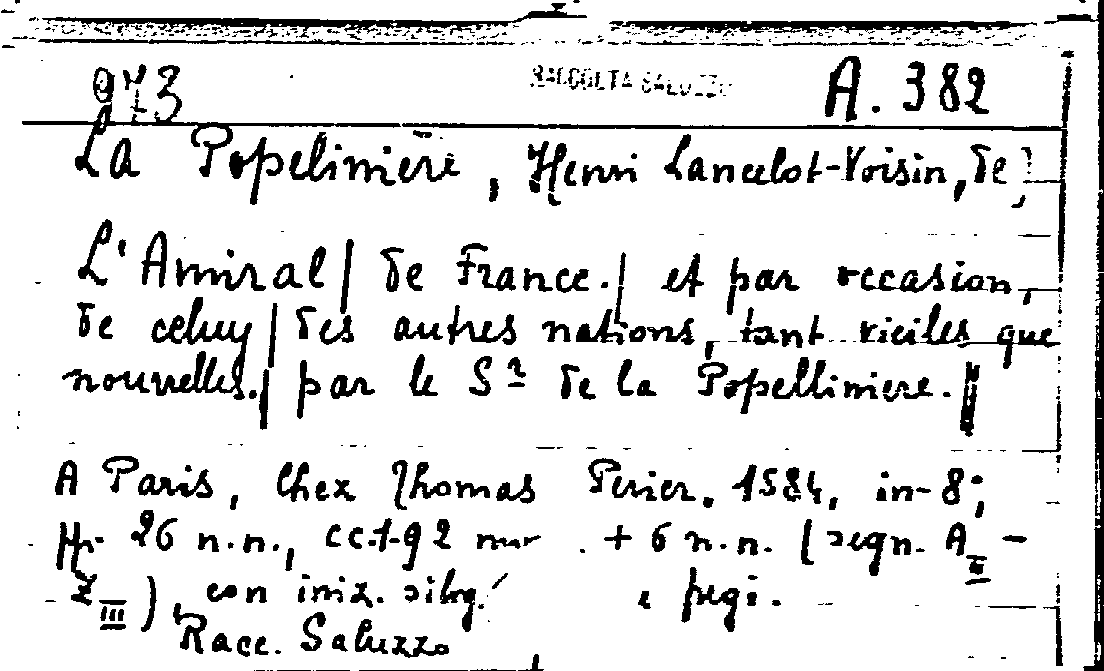 973 RACCOLTA SALUZZO A. 382
La Popelinière, Henri Lancelot-Voisin, de
L'Amiral | de France. | et par occasion,
de celuy | des autres nations, tant vieiles que
nouvelles. | par le Sr de la Popelliniere. ||
A Paris, Chez Thomas Perier. 1584, in-8°,
ff. 26 n.n., cc. 1-92 num. + 6 n.n. (segn. A II -
Z III), con iniz. silog. e fregi.
Racc. Saluzzo